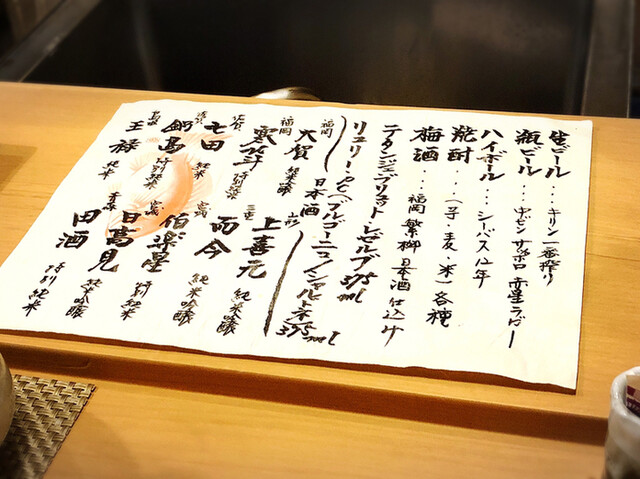 生ビール…キリン一番搾り
瓶ビール…サッポロ赤星ラガー
ハイボール…シーバス12年
焼酎…(芋・麦・米)各種
梅酒…福岡 繁桝 日本酒仕込み
テタンジェ ブリュット レゼルブ 375ml
リュリー・ブルゴーニュ シャルドネ 375ml
日本酒
福岡 大賀 純米吟醸
山形 上喜元
佐賀 特別純米
三重 而今 純米吟醸
七田 純米
宮城 伯楽星 特別純米
鍋島 特別純米
宮城 日高見 純米吟醸
王祿 純米
青森 田酒 特別純米